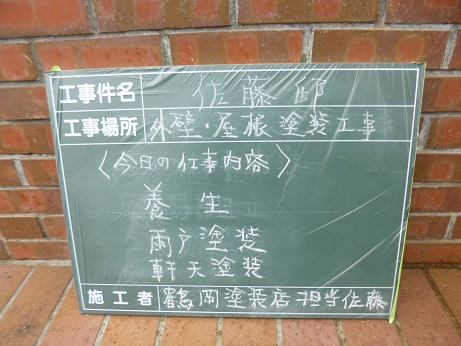 工事件名 佐藤邸
工事場所 外壁・屋根塗装工事
〈今日の仕事内容〉
養生
雨戸塗装
軒天塗装
施工者 鶴岡塗装店担当佐藤